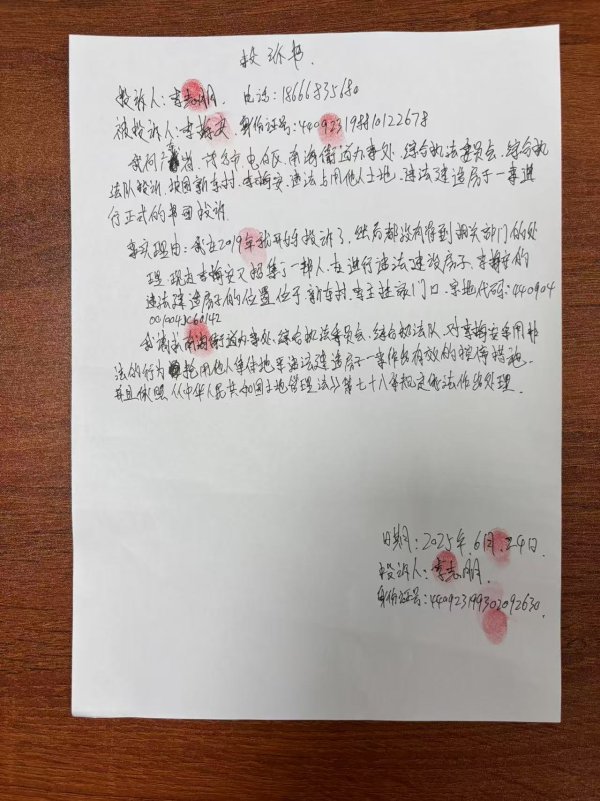 投诉书.
投诉人:李志明. 电话:18666835680
被投诉人:李梅安.身份证号:440923198810122678
我向广东省.茂名市电白区.南海街道办事处.综合执法委员会.综合执
法队投诉.新车村.李梅安.违法占用他人土地.违法建造房子一事进
行正式的书面投诉.
事实理由:我在2019年就开始投诉了,然后都没有得到相关部门的处
理.现在李梅安又招集了一帮人.在进行违法建设房子.李梅安的
违法建造房子的位置位于.新车村.门口.宗地代码:440904
001004JC60142
我请求南海街道办事处.综合执法委员会.综合执法队.对李梅安采用非
法的行为抢用他人集体地来违法建造房子一事作出有效的控停措施.
并且依照《中华人民共和国土地管理法》第七十八条规定依法作出处理.
日期:2025年.6月.24日.
投诉人:李志明.
身份证号:440923199302092630.